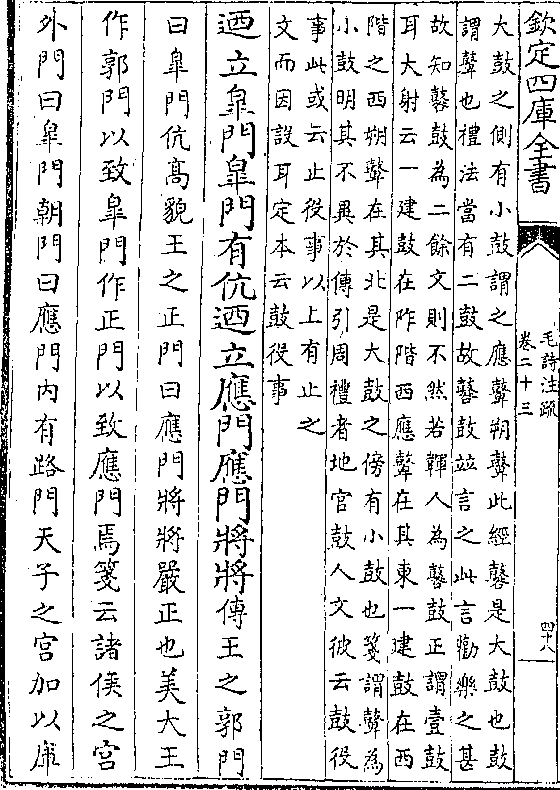 欽定四庫全書
毛詩注疏
卷二十三
四十八
大鼓之側有小鼓謂之應鼙朔鼙此經鼛是大鼓也鼓
謂鼙也禮法當有二鼓故鼛鼓並言之此言勸樂之甚
故知鼛鼓為二餘文則不然若韗人為鼛鼓正謂壹鼓
耳大射云一建鼓在阼階西應鼙在其東一建鼓在西
階之西朔鼙在其北是大鼓之傍有小鼓也箋謂鼙為
小鼓明其不異於傳引周禮者地官鼓人文彼云鼓役
事此或云止役事以上有止之
文而因設耳定本云鼓役事
迺立皐門皐門有伉迺立應門應門將將傳王之郭門
曰皐門伉高貌王之正門曰應門將將嚴正也美大王
作郭門以致皐門作正門以致應門焉箋云諸侯之宫
外門曰皐門朝門曰應門内有路門天子之宫加以庫